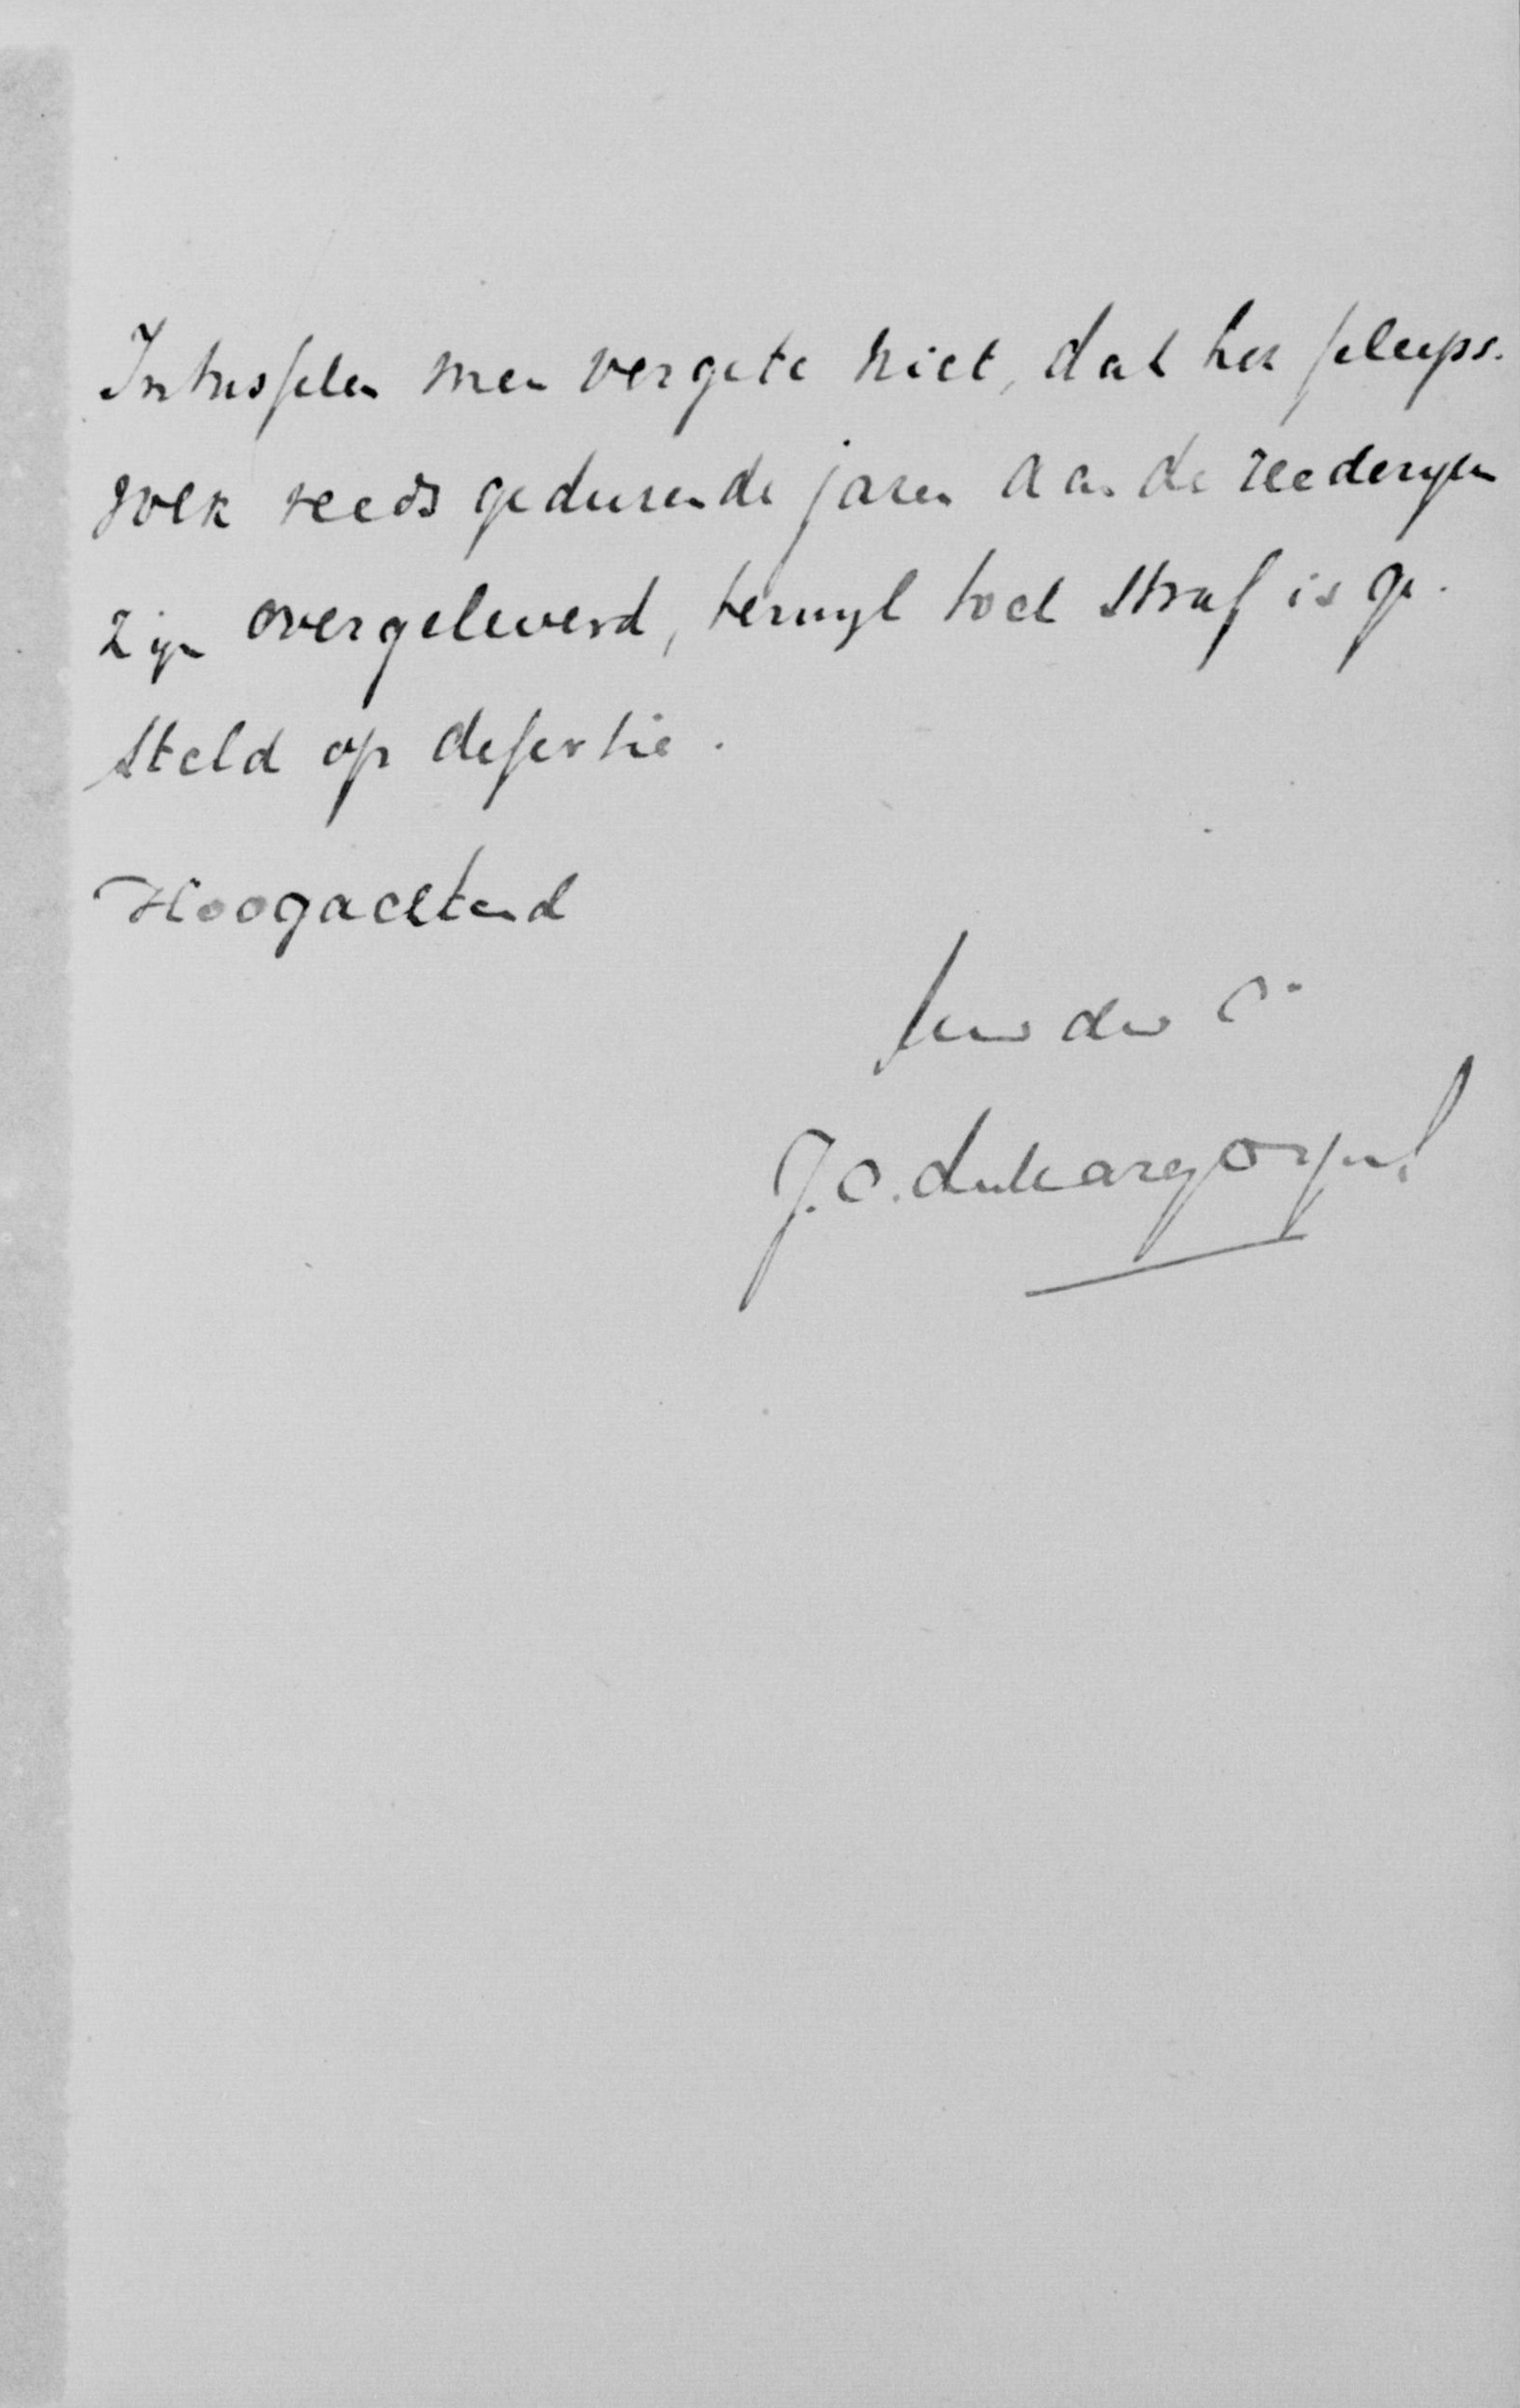 Intusschen men vergete niet, dat het scheeps-
volk reeds gedurende jaren aan de reederijen
zijn overgeleverd, terwijl toch straf is ge-
steld op desertie.
Hoogachtend
J.C.